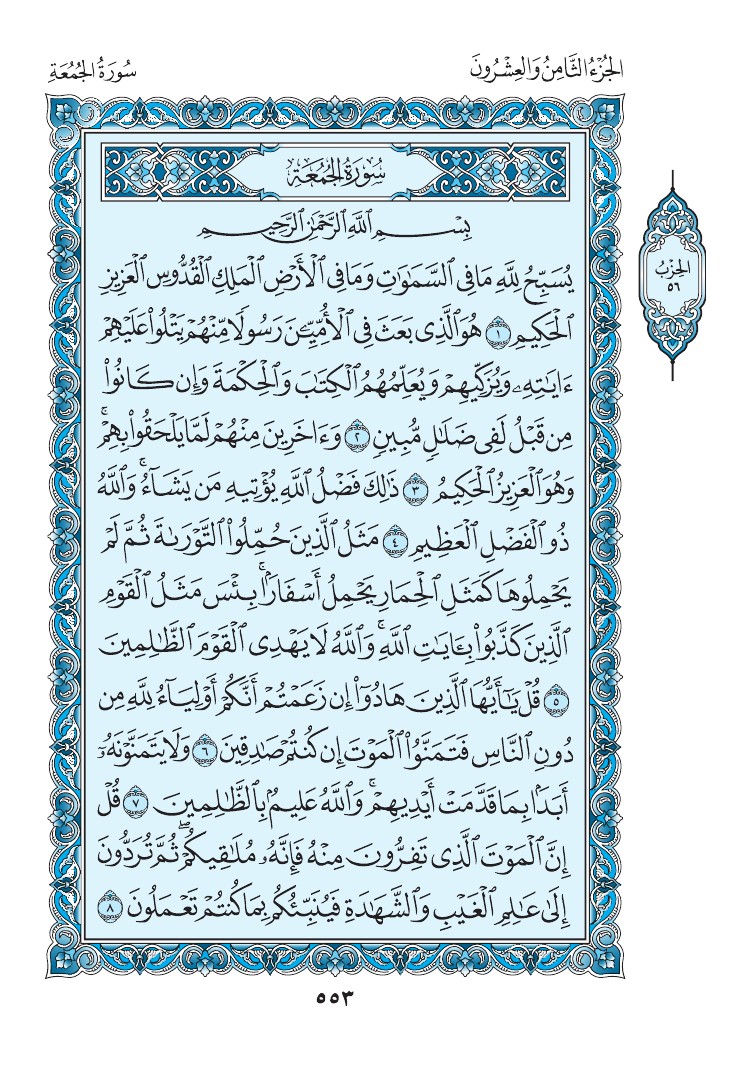 الجُزْءُ الثَّامِنُ وَالعِشْرُونَ
سُورَةُ الجُمُعَةِ
سُورَةُ الجُمُعَةِ
بِسْمِ ٱللَّهِ ٱلرَّحْمَٰنِ ٱلرَّحِيمِ
يُسَبِّحُ لِلَّهِ مَا فِي ٱلسَّمَٰوَٰتِ وَمَا فِي ٱلْأَرْضِ ٱلْمَلِكِ ٱلْقُدُّوسِ ٱلْعَزِيزِ
ٱلْحَكِيمِ ١ هُوَ ٱلَّذِي بَعَثَ فِي ٱلْأُمِّيِّـۧنَ رَسُولًا مِّنْهُمْ يَتْلُوا۟ عَلَيْهِمْ
ءَايَٰتِهِۦ وَيُزَكِّيهِمْ وَيُعَلِّمُهُمُ ٱلْكِتَٰبَ وَٱلْحِكْمَةَ وَإِن كَانُوا۟
مِن قَبْلُ لَفِي ضَلَٰلٍ مُّبِينٍ ٢ وَءَاخَرِينَ مِنْهُمْ لَمَّا يَلْحَقُوا۟ بِهِمْۚ
وَهُوَ ٱلْعَزِيزُ ٱلْحَكِيمُ ٣ ذَٰلِكَ فَضْلُ ٱللَّهِ يُؤْتِيهِ مَن يَشَآءُۚ وَٱللَّهُ
ذُو ٱلْفَضْلِ ٱلْعَظِيمِ ٤ مَثَلُ ٱلَّذِينَ حُمِّلُوا۟ ٱلتَّوْرَىٰةَ ثُمَّ لَمْ
يَحْمِلُوهَا كَمَثَلِ ٱلْحِمَارِ يَحْمِلُ أَسْفَارًاۚ بِئْسَ مَثَلُ ٱلْقَوْمِ
ٱلَّذِينَ كَذَّبُوا۟ بِـَٔايَٰتِ ٱللَّهِۚ وَٱللَّهُ لَا يَهْدِي ٱلْقَوْمَ ٱلظَّٰلِمِينَ
٥ قُلْ يَٰٓأَيُّهَا ٱلَّذِينَ هَادُوٓا۟ إِن زَعَمْتُمْ أَنَّكُمْ أَوْلِيَآءُ لِلَّهِ مِن
دُونِ ٱلنَّاسِ فَتَمَنَّوُا۟ ٱلْمَوْتَ إِن كُنتُمْ صَٰدِقِينَ ٦ وَلَا يَتَمَنَّوْنَهُۥٓ
أَبَدًۢا بِمَا قَدَّمَتْ أَيْدِيهِمْۚ وَٱللَّهُ عَلِيمٌۢ بِٱلظَّٰلِمِينَ ٧ قُلْ
إِنَّ ٱلْمَوْتَ ٱلَّذِي تَفِرُّونَ مِنْهُ فَإِنَّهُۥ مُلَٰقِيكُمْۖ ثُمَّ تُرَدُّونَ
إِلَىٰ عَٰلِمِ ٱلْغَيْبِ وَٱلشَّهَٰدَةِ فَيُنَبِّئُكُم بِمَا كُنتُمْ تَعْمَلُونَ ٨
الحِزْبُ
٥٦
٥٥٣